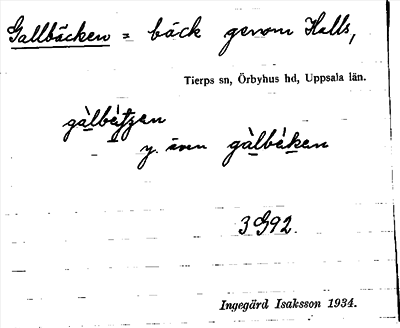 Gallbäcken = bäck genom Halls,
Tierps sn, Örbyhus hd, Uppsala län.
gàlbètzen
y. även gàlbèken
3G92.
Ingegärd Isaksson 1934.